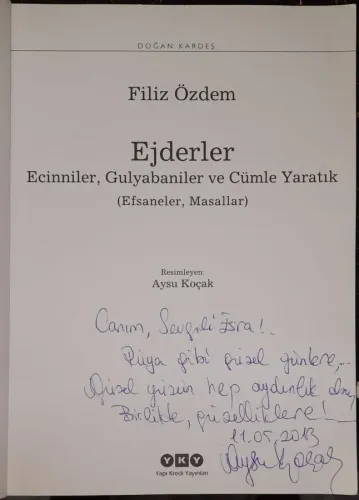 DOĞAN KARDEŞ
Filiz Özdem
Ejderler
Ecinniler, Gulyabaniler ve Cümle Yaratık
(Efsaneler, Masallar)
Resimleyen:
Aysu Koçak
Canım, Sevgili Esra!..
Rüya gibi güzel günlere,...
Güzel yüzün hep aydınlık olsun
Birlikte, güzelliklere!
11.05.2013
Aysu Koçak
YKY
Yapı Kredi Yayınları